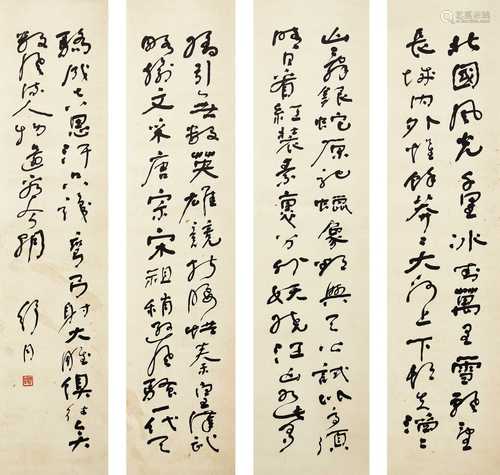 北國風光千里冰封萬里雪飄望
長城内外惟餘莽〻大河上下頓失滔〻
山舞銀蛇原馳蠟象欲與天公試比高須
晴日看紅裝素裹分外妖嬈江山如此多
嬌引無數英雄競折腰惜秦皇漢武
略輸文采唐宗宋祖稍遜風騷一代天
驕成吉思汗只識彎弓射大雕俱往矣
數風流人物還看今朝
舒同